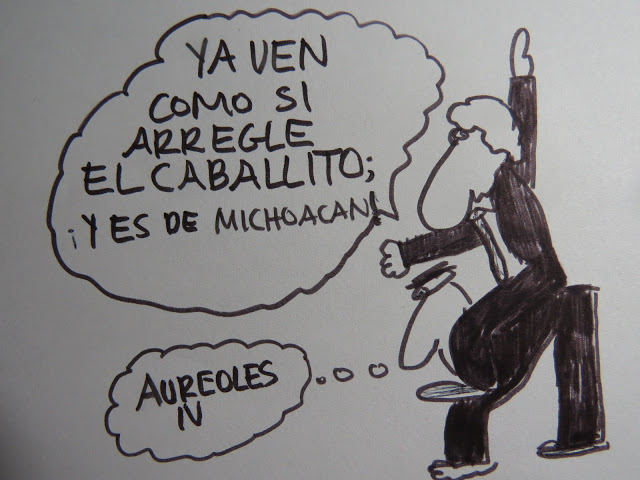 YA VEN
COMO SI
ARREGLE
EL CABALLITO;
¡Y ES DE MICHOACAN!
AUREOLES
IV